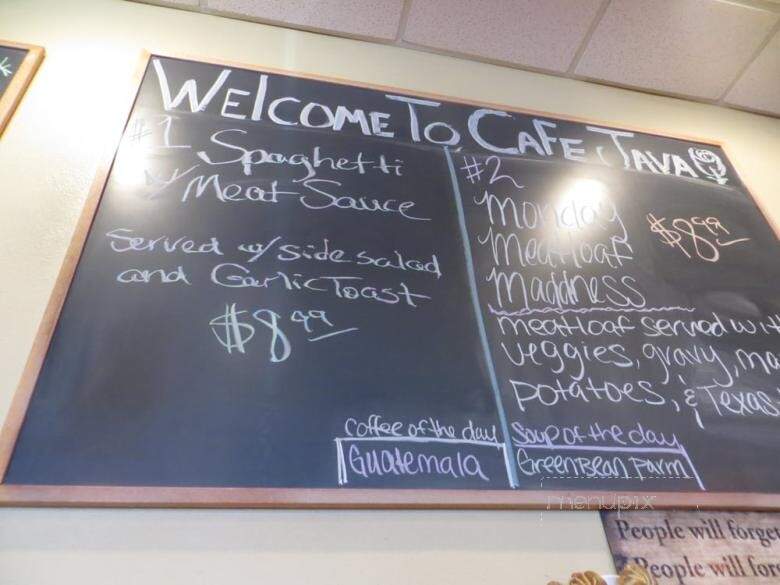 WELCOME TO CAFE JAVA
#1 Spaghetti
w/ Meat Sauce
Served w/ side salad
and Garlic Toast
$8.99
#2
Monday
Meatloaf
Maddness
$8.99
meatloaf served with
veggies, gravy,
potatoes, & Texas
Coffee of the day
Guatemala
Soup of the day
GreenBean Parm
menupix
People will forget
People will